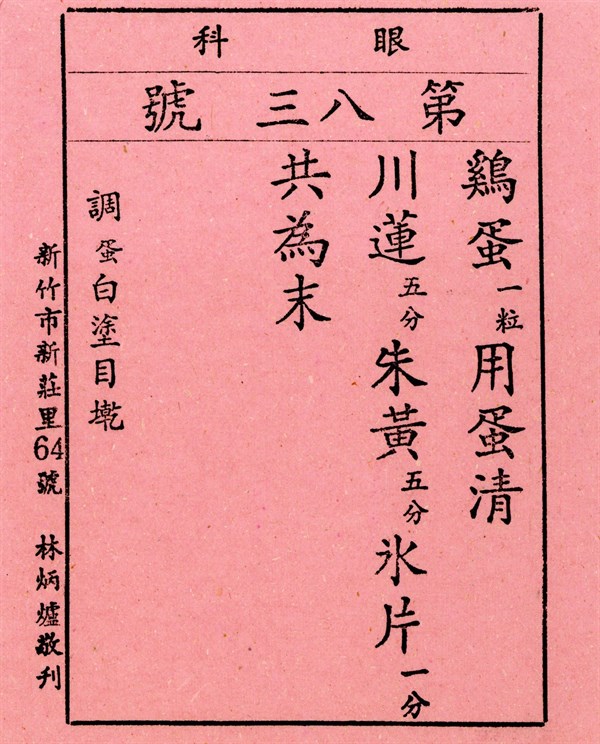 眼科
第八三號
鷄蛋一粒用蛋清
川蓮五分朱黃五分氷片一分
共為末
調蛋白塗目墘
新竹市新莊里64號 林炳爐敬刋